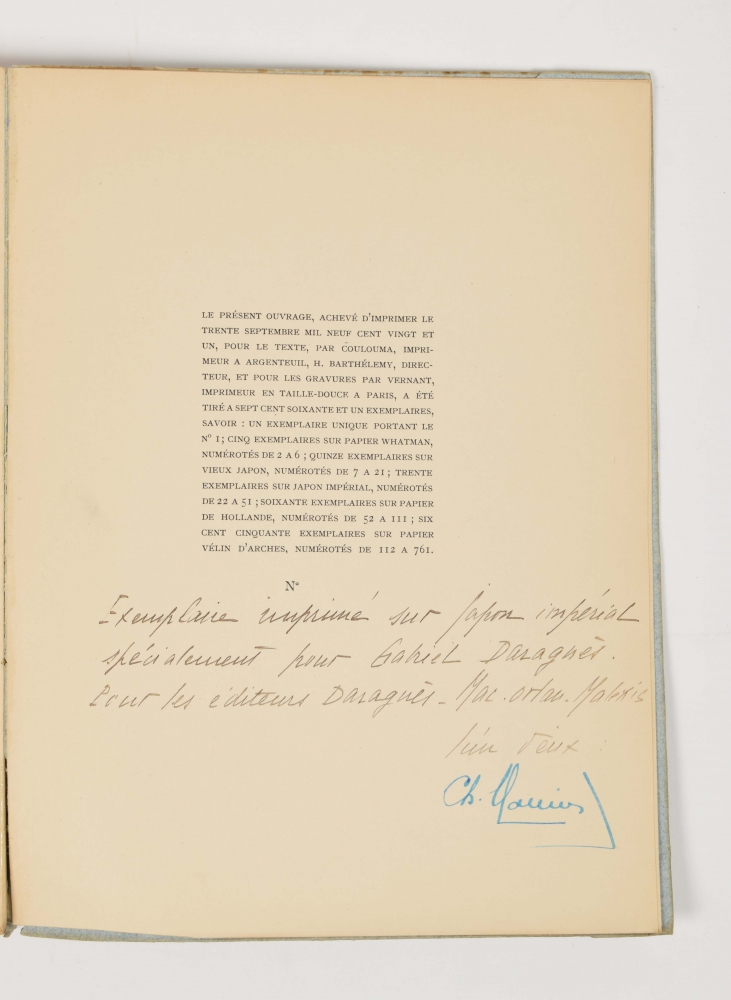 LE PRÉSENT OUVRAGE, ACHEVÉ D'IMPRIMER LE
TRENTE SEPTEMBRE MIL NEUF CENT VINGT ET
UN, POUR LE TEXTE, PAR COULOUMA, IMPRI-
MEUR A ARGENTEUIL, H. BARTHÉLEMY, DIREC-
TEUR, ET POUR LES GRAVURES PAR VERNANT,
IMPRIMEUR EN TAILLE-DOUCE A PARIS, A ÉTÉ
TIRÉ A SEPT CENT SOIXANTE ET UN EXEMPLAIRES,
SAVOIR : UN EXEMPLAIRE UNIQUE PORTANT LE
Nº 1 ; CINQ EXEMPLAIRES SUR PAPIER WHATMAN,
NUMÉROTÉS DE 2 A 6 ; QUINZE EXEMPLAIRES SUR
VIEUX JAPON, NUMÉROTÉS DE 7 A 21 ; TRENTE
EXEMPLAIRES SUR JAPON IMPÉRIAL, NUMÉROTÉS
DE 22 A 51 ; SOIXANTE EXEMPLAIRES SUR PAPIER
DE HOLLANDE, NUMÉROTÉS DE 52 A 111 ; SIX
CENT CINQUANTE EXEMPLAIRES SUR PAPIER
VÉLIN D'ARCHES, NUMÉROTÉS DE 112 A 761.
Nº
Exemplaire imprimé sur Japon impérial
spécialement pour Gabriel Daragnès.
Pour les éditeurs Daragnès - Mac. orlan.
l'un d'eux :
Ch.